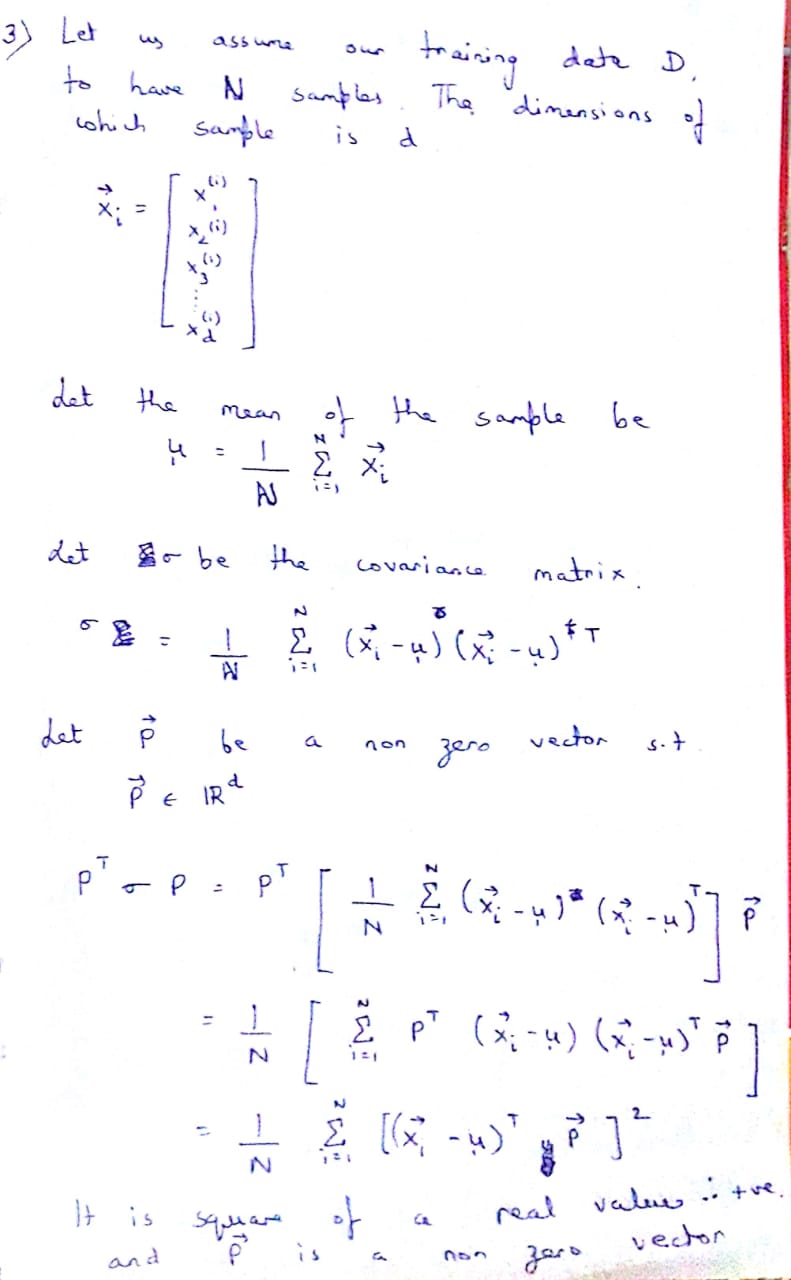 3) Let us assume our training data D,
to have N samples. The dimensions of
which sample is d
x⃗ᵢ = [ x₁⁽ⁱ⁾
x₂⁽ⁱ⁾
x₃⁽ⁱ⁾
.....
x_d⁽ⁱ⁾ ]
Let the mean of the sample be
μ = 1/N Σᵢ₌₁ᴺ x⃗ᵢ
Let σ be the covariance matrix.
σ = 1/N Σᵢ₌₁ᴺ (x⃗ᵢ - μ) (x⃗ᵢ - μ)ᵀ
Let p⃗ be a non zero vector s.t.
p⃗ ∈ ℝᵈ
pᵀ σ p = pᵀ [ 1/N Σᵢ₌₁ᴺ (x⃗ᵢ - μ) (x⃗ᵢ - μ)ᵀ ] p⃗
= 1/N [ Σᵢ₌₁ᴺ pᵀ (x⃗ᵢ - μ) (x⃗ᵢ - μ)ᵀ p⃗ ]
= 1/N Σᵢ₌₁ᴺ [(x⃗ᵢ - μ)ᵀ p⃗ ]²
It is square of a real values ∴ +ve.
and p⃗ is a non zero vector